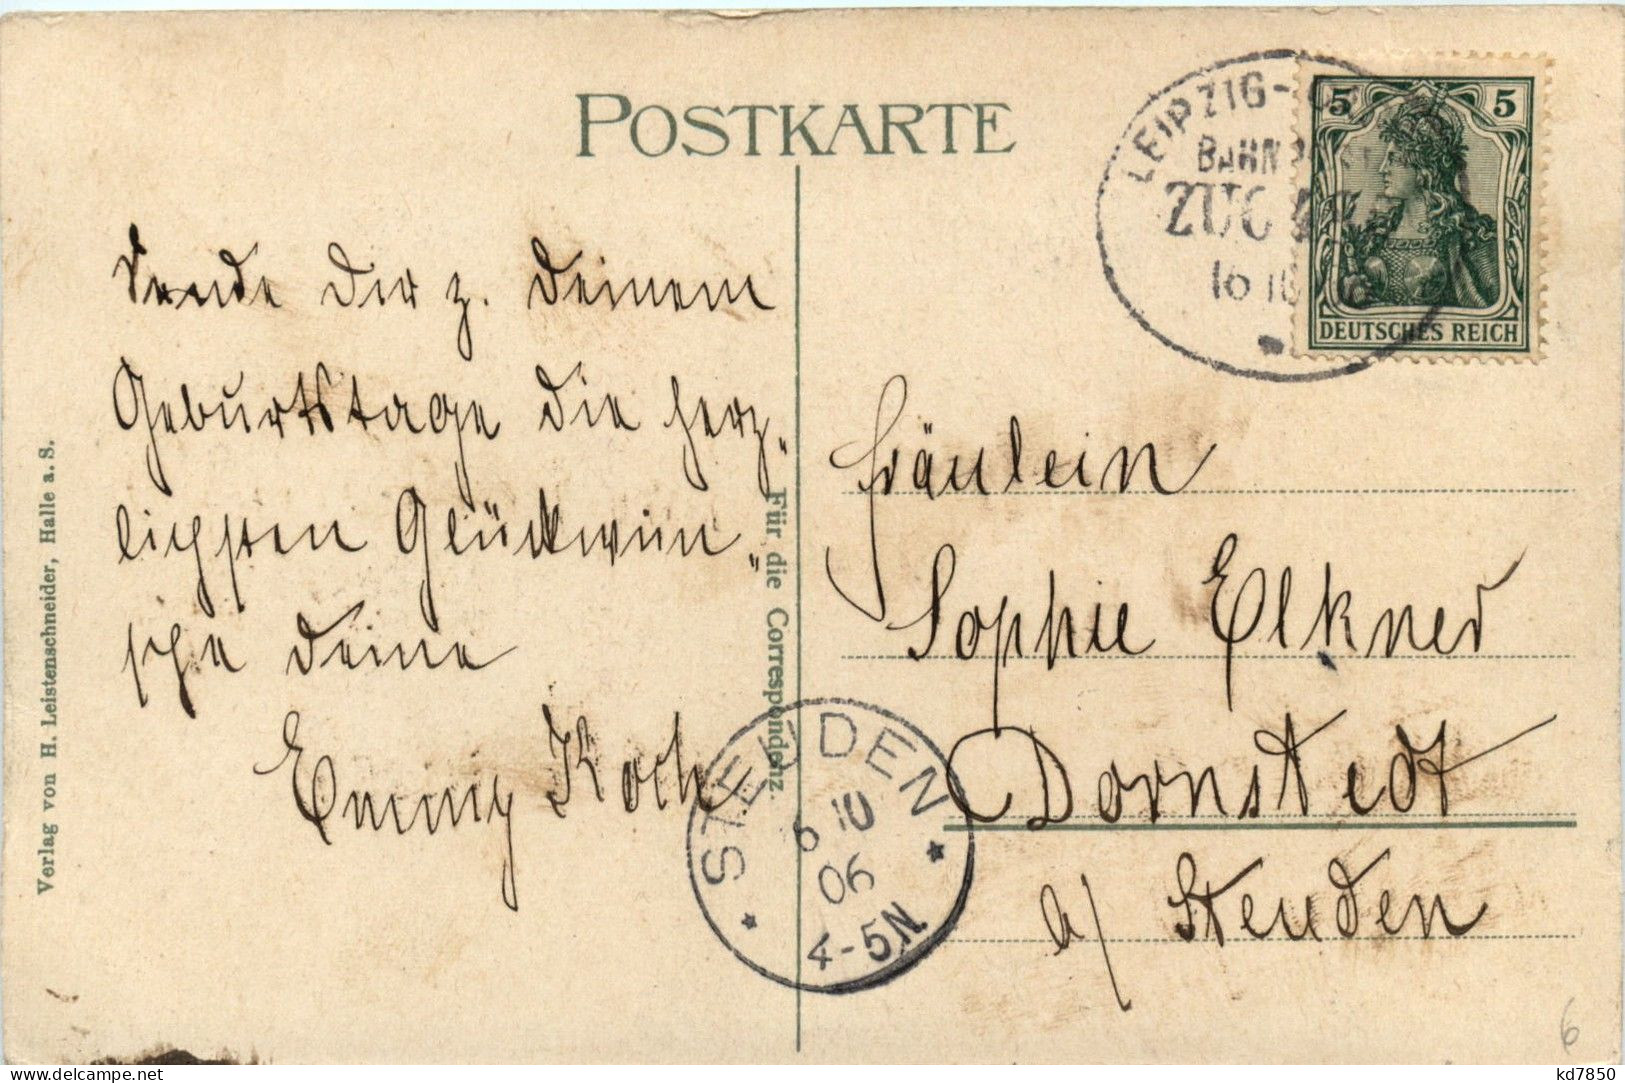 POSTKARTE
Sende Dir z. Deinem
Geburtstage die herz-
lichsten Glückwün-
sche Deine
Emmy Koch
Verlag von H. Leistenschneider, Halle a. S.
Für die Correspondenz.
LEIPZIG-
BAHN
ZUG
16 10
5 5
DEUTSCHES REICH
Fräulein
Sophie Elkner
Dornstedt
b/ Steuden
STEUDEN
6 10
06
4-5N
6
kd7850